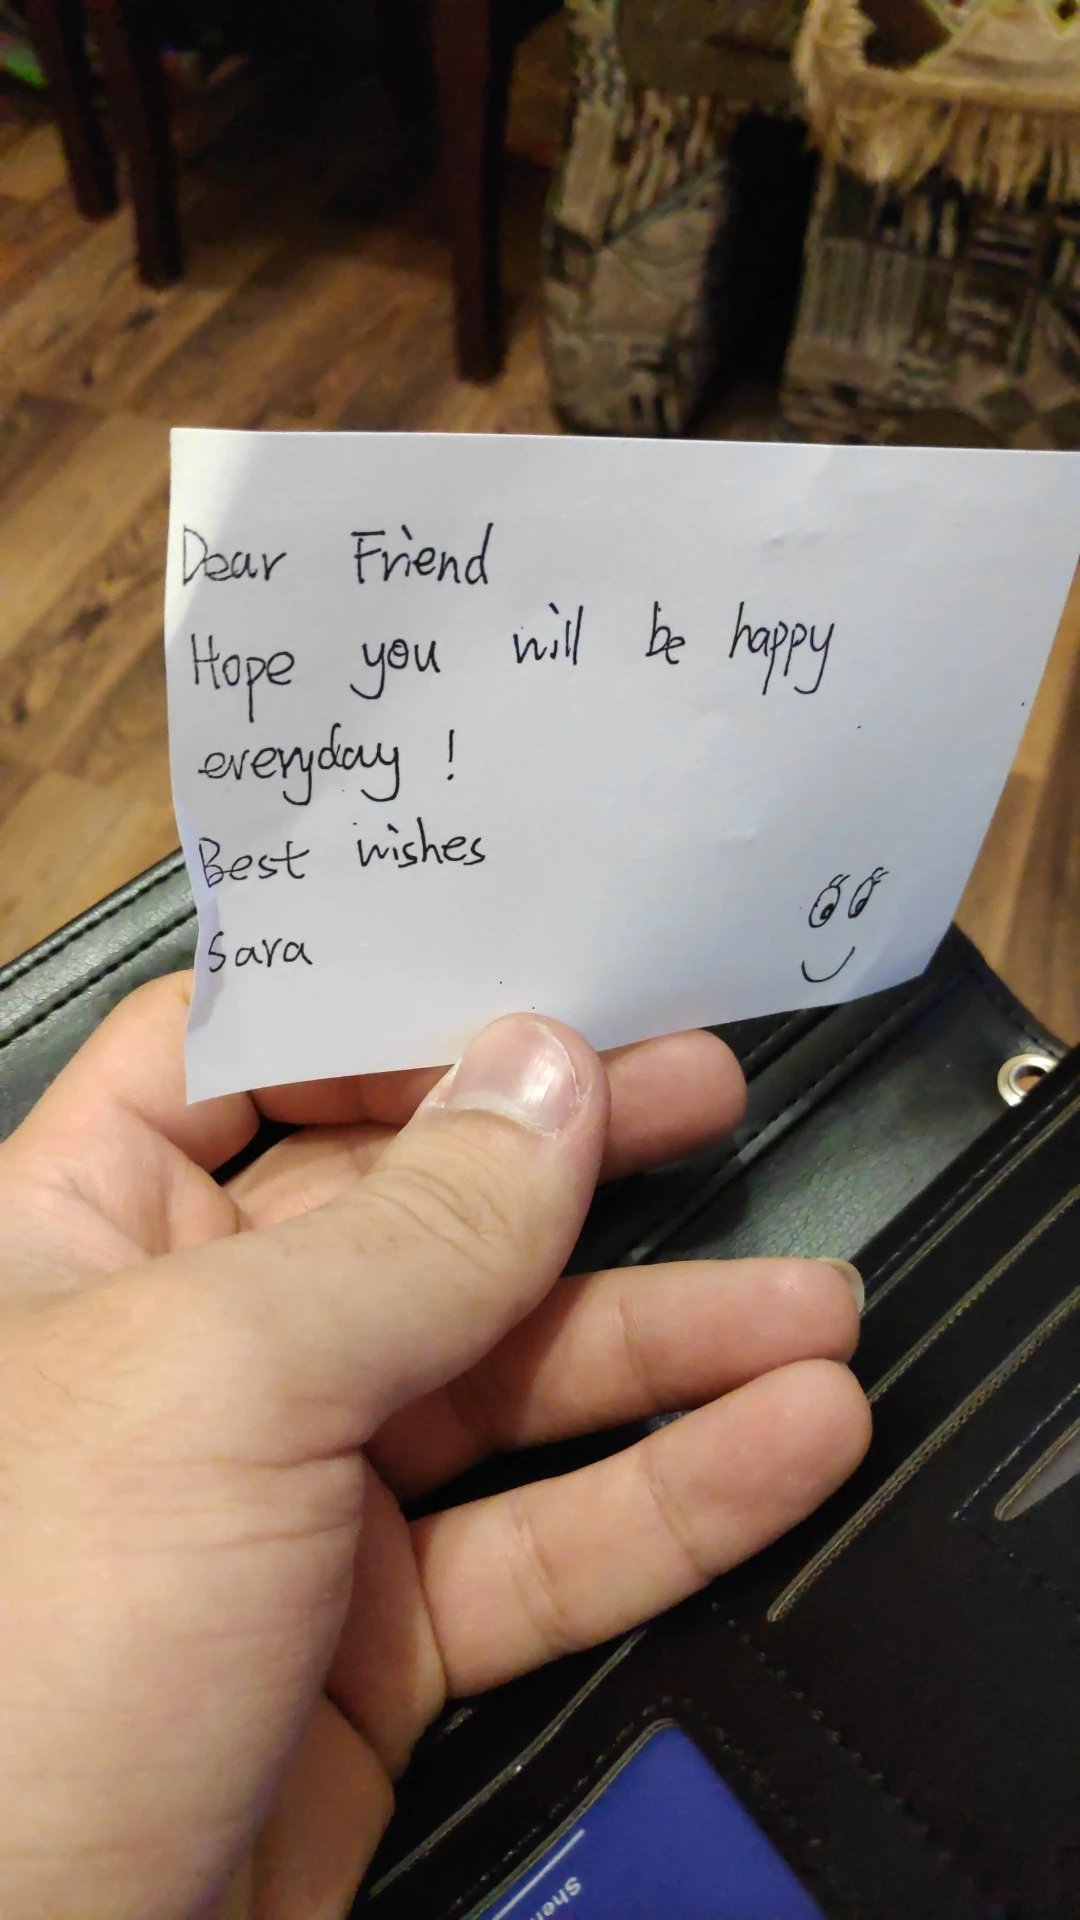 Dear Friend
Hope you will be happy
everyday !
Best wishes
Sara